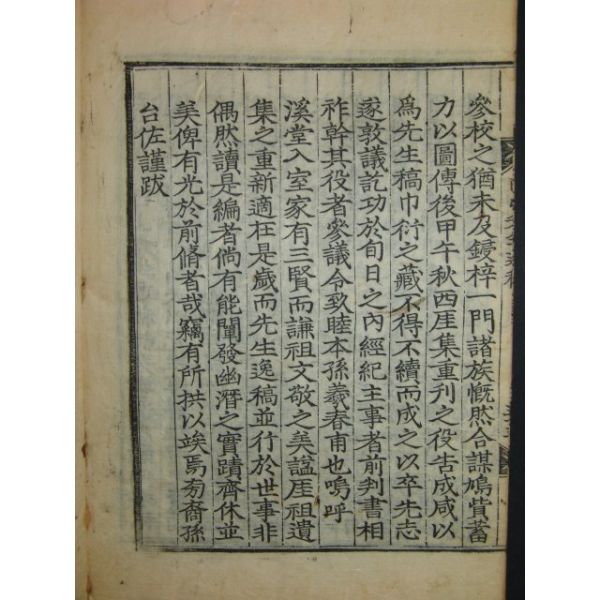 參校之猶未及鋟梓一門諸族慨然合謀鳩貲蓄
力以圖傳後甲午秋西厓集重刊之役告成咸以
爲先生稿巾衍之藏不得不續而成之以卒先志
遂敦議訖功於旬日之內經紀主事者前判書相
祚幹其役者參議令致睦本孫羲春甫也嗚呼
溪堂入室家有三賢而謙祖文敬之美諡厓祖遺
集之重新適在是歲而先生逸稿並行於世事非
偶然讀是編者倘有能闡發幽潛之實蹟齊休並
美俾有光於前脩者哉竊有所拱以竢焉旁裔孫
台佐謹跋